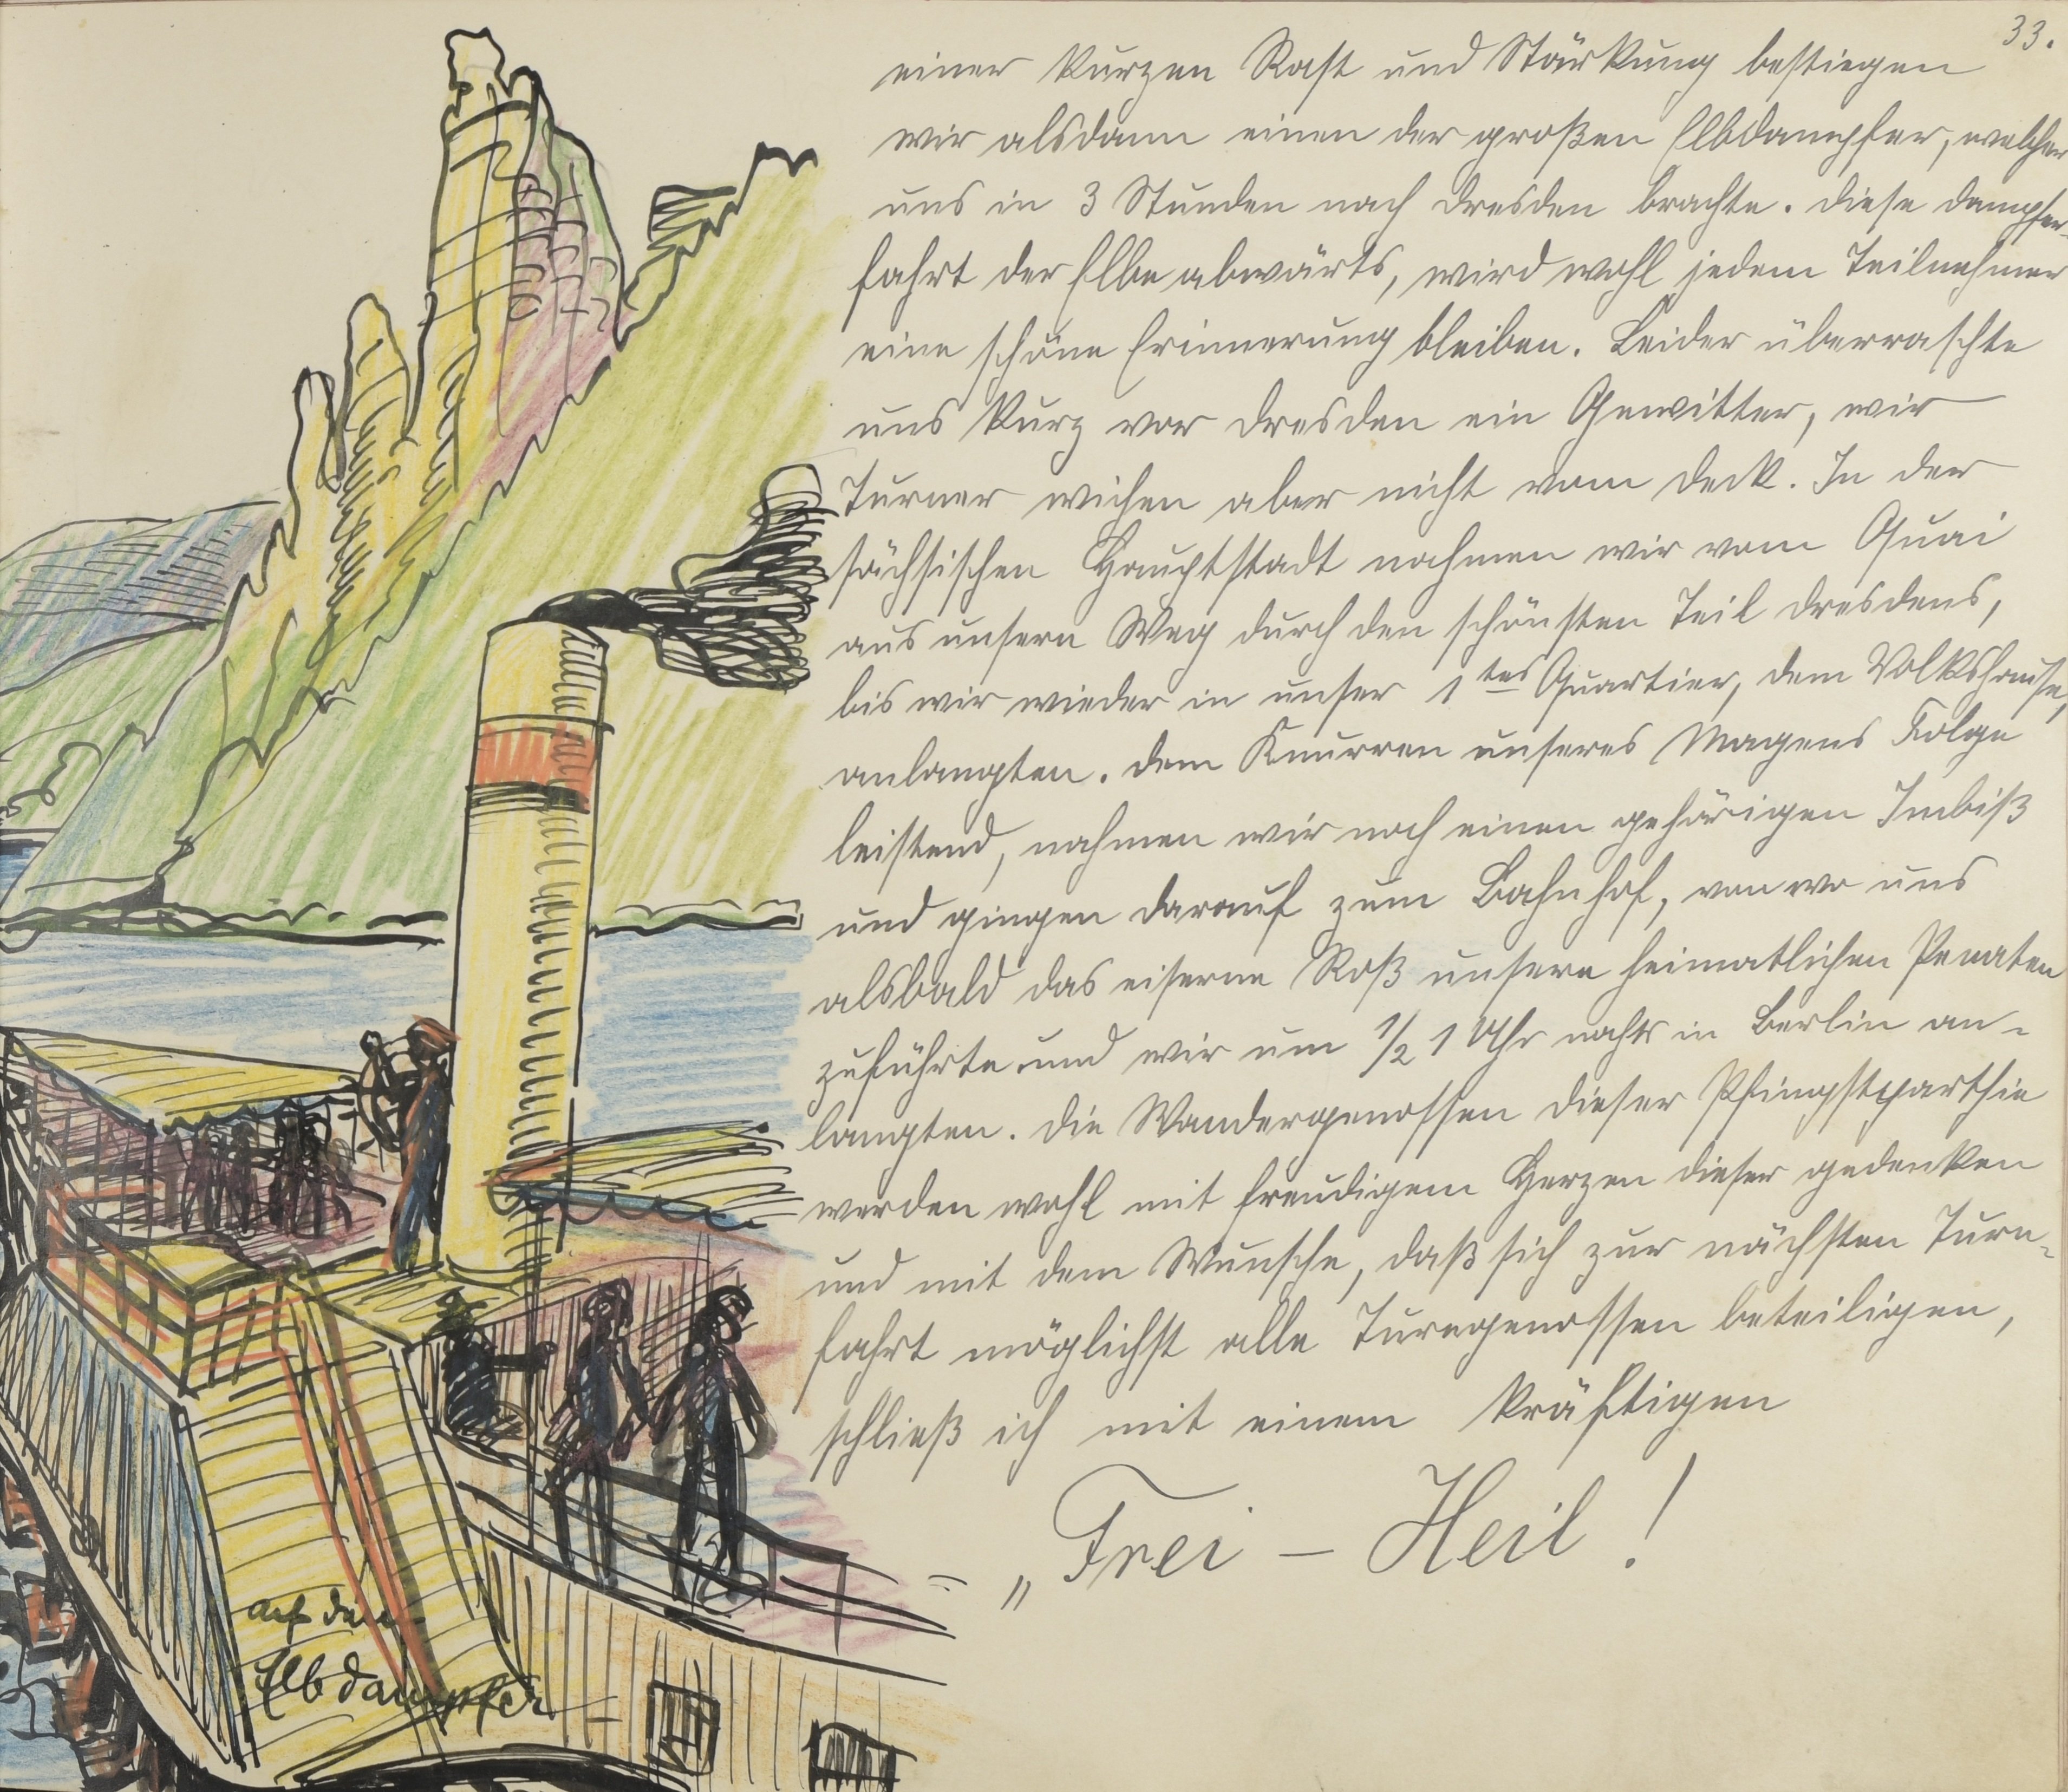 33.
einer kurzen Rast und Stärkung bestiegen
wir alsdann einen der großen Elbdampfer, welcher
uns in 3 Stunden nach Dresden brachte. Diese Dampfer-
fahrt der Elbe abwärts, wird wohl jedem Teilnehmer
eine schöne Erinnerung bleiben. Leider überraschte
uns kurz vor Dresden ein Gewitter, wir
Turner wichen aber nicht vom Deck. In der
sächsischen Hauptstadt nahmen wir vom Quai
aus unsern Weg durch den schönsten Teil Dresdens,
bis wir wieder in unser 1tes Quartier, dem Volkshause,
anlangten. Dem Knurren unseres Magens Folge
leistend, nahmen wir noch einen gehörigen Imbiß
und gingen darauf zum Bahnhof, von wo uns
alsbald das eiserne Roß unsern heimatlichen Penaten
zuführte und wir um ½ 1 Uhr nachts in Berlin an-
langten. Die Wandergenossen dieser Pfingstparthie
werden wohl mit freudigem Herzen dieser gedenken
und mit dem Wunsche, daß sich zur nächsten Turn-
fahrt möglichst alle Turngenossen beteiligen,
schließ ich mit einem kräftigen
= „Frei – Heil!
auf dem
Elbdampfer